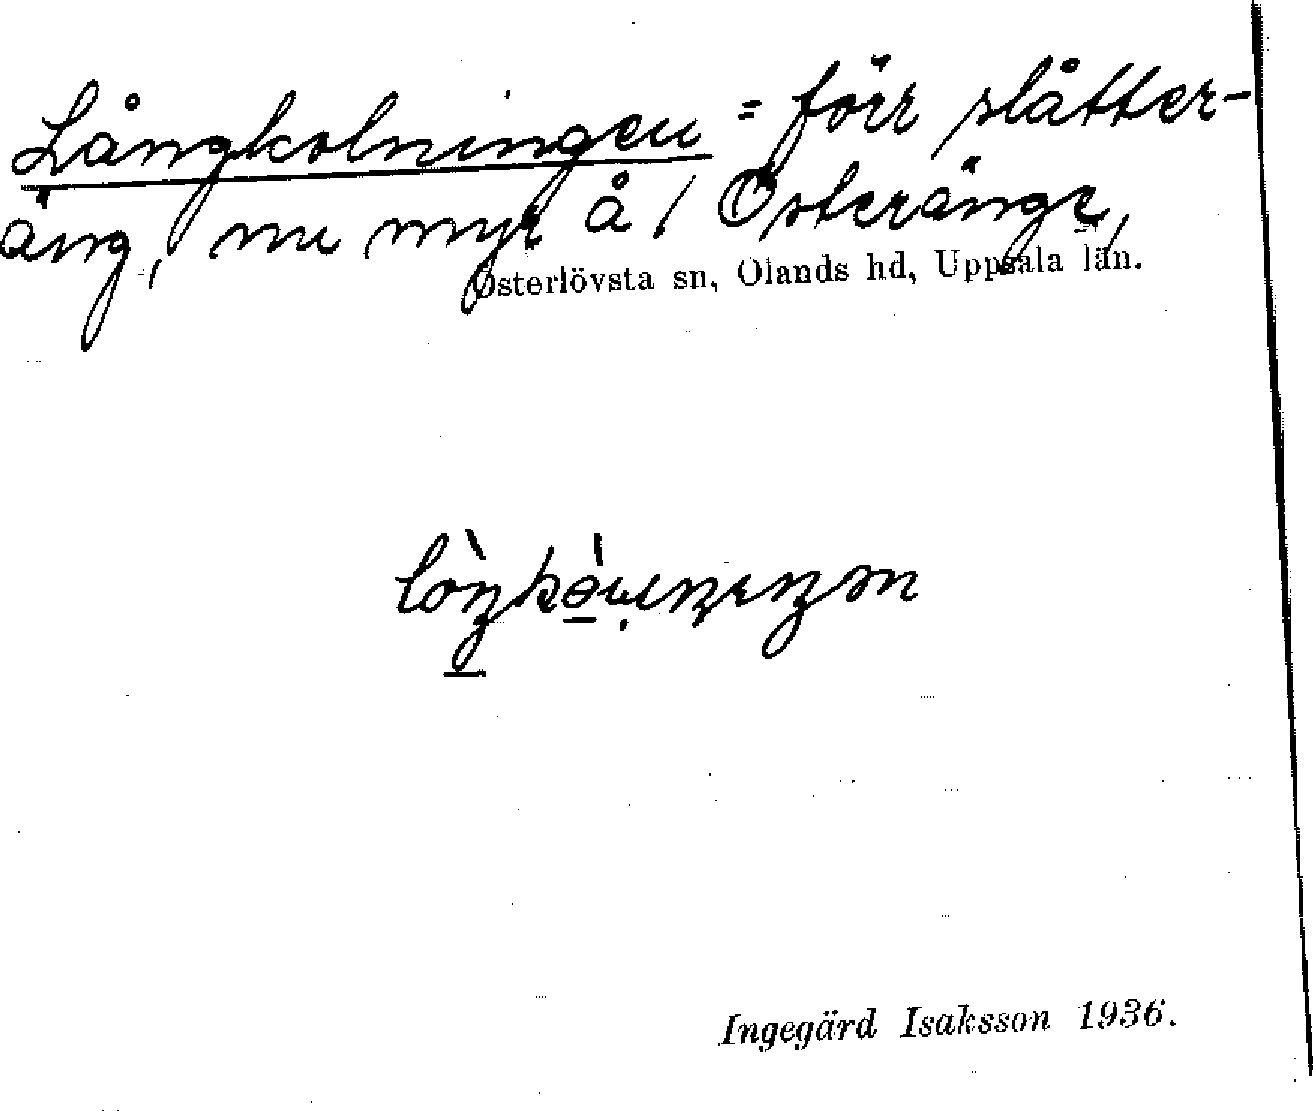 Långkolningen = förr slåtter-
äng, nu myr å / Österänge,
Österlövsta sn, Olands hd, Uppsala län.
Ingegärd Isaksson 1936.